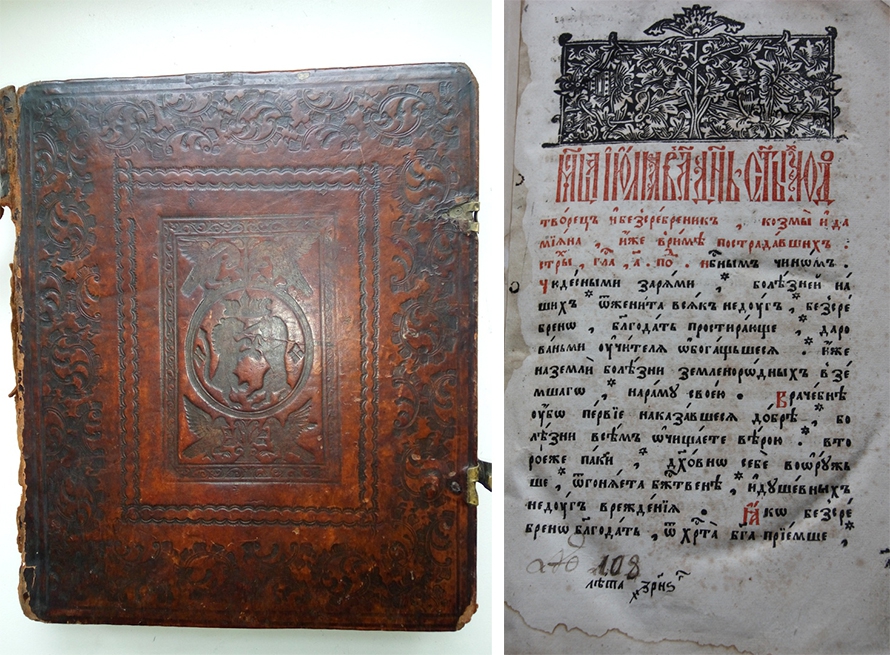 мц҃а і҆ю́лиѧ в҃а дн҃ь · ст҃ы́хъ чюд
тво́рецъ и҆безсре́бреникъ , козмы̀ и҆да
мїѧ́на , и҆́же в̾ри́мѣ пострада́вшихъ :
стр҃ы , гла́ , а҃ . по̑ . нб҃нымъ чи́номъ .
Чюде́сными зарѧ́ми , болѣ́зней на́
шихъ ѿжени́та всѧ́къ недꙋ́гъ , безсре́
бренѡ , блг҃ода́ть простира́юще , даро
ва́ньми ᲂу҆чи́телѧ ѡ҆бога́щьшесѧ . и҆́же
наземлѝ болѣ́зни земленоро́дныхъ взе́
мшаго , нара́мꙋ свою̀ . Враче́бнѣ
ᲂу҆́бѡ пе́рвїе наказа́вшесѧ до́брѣ , бо
лѣ́зни всѣ́мъ ѡ҆чища́ете вѣ́рою . вто
ро́еже па́ки , дх҃о́внѡ себѐ воѡрꙋ́жь
ше , ѿгонѧ́ета бж҃твенѣ , и҆дꙋше́вныхъ
недꙋ́гъ врежде́нїѧ . Ꙗ҆́кѡ безсре́
бренѡ блг҃ода́ть , ѿ хр҃та̀ бг҃а прїе́мше ,
108
лѣ́та ҂зрн҃ѕ г҃